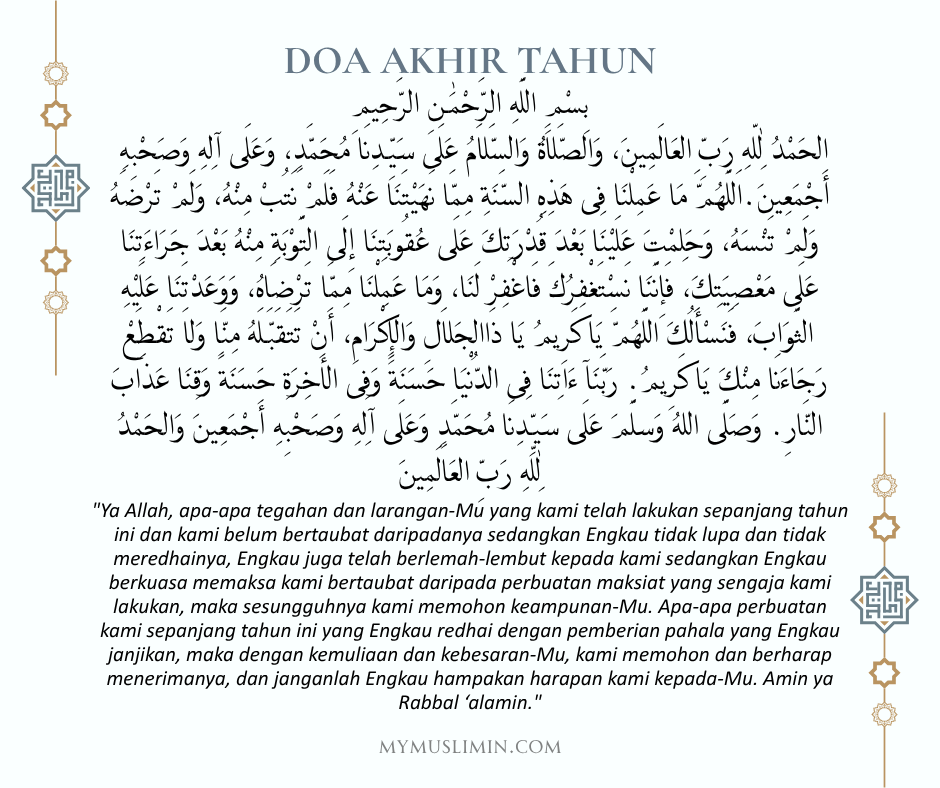 DOA AKHIR TAHUN
بِسْمِ اللَّهِ الرَّحْمَٰنِ الرَّحِيمِ
الحَمْدُ لِلّٰهِ رَبِّ العَالَمِينَ، وَالصَّلَاةُ وَالسَّلَامُ عَلَى سَيِّدِنَا مُحَمَّدٍ، وَعَلَى آلِهِ وَصَحْبِهِ
أَجْمَعِينَ. اللَّهُمَّ مَا عَمِلْنَا فِى هَذِهِ السَّنَةِ مِمَّا نَهَيْتَنَا عَنْهُ فَلَمْ نَتُبْ مِنْهُ، وَلَمْ تَرْضَهُ
وَلَمْ تَنْسَهُ، وَحَلِمْتَ عَلَيْنَا بَعْدَ قُدْرَتِكَ عَلَى عُقُوبَتِنَا إِلَى التَّوْبَةِ مِنْهُ بَعْدَ جَرَاءَتِنَا
عَلَى مَعْصِيَتِكَ، فَإِنَّنَا نَسْتَغْفِرُكَ فَاغْفِرْ لَنَا، وَمَا عَمِلْنَا مِمَّا تَرْضَاهُ، وَوَعَدْتَنَا عَلَيْهِ
الثَّوَابَ، فَنَسْأَلُكَ اللَّهُمَّ يَاكَرِيمُ يَا ذَاالجَلَالِ وَالإِكْرَامِ، أَنْ تَتَقَبَّلَهُ مِنَّا وَلَا تَقْطَعْ
رَجَاءَنَا مِنْكَ يَاكَرِيمُ. رَبَّنَآ ءَاتِنَا فِى الدُّنْيَا حَسَنَةً وَفِى الْأَخِرَةِ حَسَنَةً وَقِنَا عَذَابَ
النَّارِ. وَصَلَّى اللهُ وَسلَّمَ عَلَى سَيِّدِنَا مُحَمَّدٍ وَعَلَى آلِهِ وَصَحْبِهِ أَجْمَعِينَ وَالحَمْدُ
لِلَّهِ رَبِّ العَالَمِينَ
"Ya Allah, apa-apa tegahan dan larangan-Mu yang kami telah lakukan sepanjang tahun
ini dan kami belum bertaubat daripadanya sedangkan Engkau tidak lupa dan tidak
meredhainya, Engkau juga telah berlemah-lembut kepada kami sedangkan Engkau
berkuasa memaksa kami bertaubat daripada perbuatan maksiat yang sengaja kami
lakukan, maka sesungguhnya kami memohon keampunan-Mu. Apa-apa perbuatan
kami sepanjang tahun ini yang Engkau redhai dengan pemberian pahala yang Engkau
janjikan, maka dengan kemuliaan dan kebesaran-Mu, kami memohon dan berharap
menerimanya, dan janganlah Engkau hampakan harapan kami kepada-Mu. Amin ya
Rabbal ‘alamin."
MYMUSLIMIN.COM